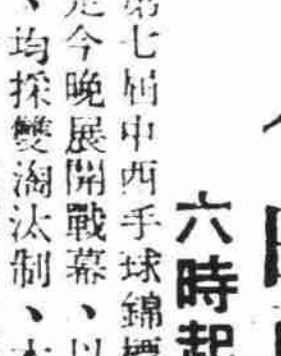 六時起
第七屆中西手球錦標
是今晚展開戰幕、以
、均採雙淘汰制、大